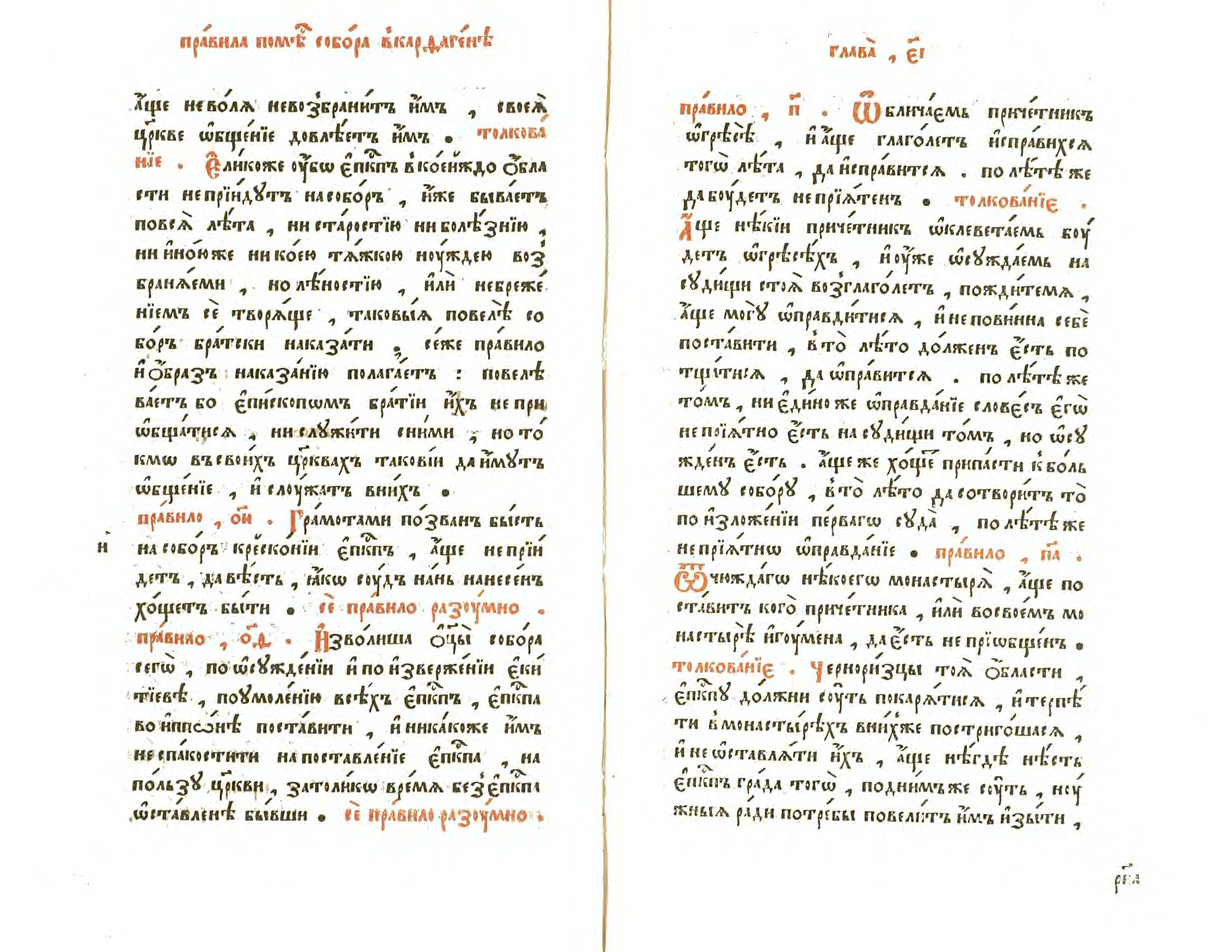 пра́вила помѣ́ст собо́ра в̾кардаге́нѣ
а҆́ще нево́лѧ невоз̾брани́тъ и҆̀мъ , своеѧ̀
цр҃кве ѡ҆бще́нїе довлѣ́етъ и҆̀мъ . толкова́
нїе . Е҆ли́коже ᲂу҆́бѡ є҆пⷭ҇кпъ в̾ко́еи҆ждо ѻ҆́бла
сти непрїи́дꙋтъ насобо́ръ , и҆́же быва́етъ
повсѧ̀ лѣ́та , ниста́ростїю ниболѣ́знїю ,
нии҆но́юже нико́ею тѧ́жкою нꙋ́ждею воз̾
бранѧ́еми , нолѣ́ностїю , и҆лѝ небреже́
нїемъ сѐ творѧ́ще , таковы́ѧ повелѣ̀ со
бо́ръ бра́тски наказа́ти . се́же пра́вило
и҆ѻ҆́бразъ наказа́нїю полага́етъ : повелѣ
ва́етъ бо є҆пи́скопѡмъ бра́тїи и҆́хъ непри
ѡ҆бща́тисѧ , нислꙋжи́ти сни́ми ,ното́
кмѡ въсвои́хъ цр҃квахъ такові́и даи҆́мꙋтъ
ѡ҆бще́нїе , и҆ слꙋ́жатъ вни́хъ .
пра́вило , о҃и . Гра́мотами по́званъ бы́сть
насобо́ръ криско́нїи є҆пⷭ҇кпъ , а҆́ще непрїи́
детъ , давѣ́сть , ꙗ҆́кѡ сꙋ́дъ на́нь нанесе́нъ
хо́щетъ бы́ти . сѐ пра́вило разꙋ́мно .
пра́вило , о҃д . И҆зво́лиша ѻ҆тц҃ы̀ собо́ра
сегѡ̀ , поѡ҆сꙋжде́нїи и҆поизверже́нїи є҆кви
тїевѣ , поꙋмоле́нїю всѣ́хъ є҆пⷭ҇кпъ , є҆пⷭ҇кпа
воиппѡ́нѣ поста́вити , и҆ника́коже и҆̀мъ
неспа́костити напоставле́нїе є҆пⷭ҇кпа , на
по́льзꙋ цр҃кви , затоли́кѡ вре́мѧ без̾є҆пⷭ҇кпа
ѡ҆ста́вленѣ бы́вши . сѐ пра́вило разꙋ́мно .
и҃
глава̀ , є҃і
пра́вило , п҃ . Ѡ҆блича́емь приче́тникъ
ѡ҆грѣсѣ̀ , и҆а҆́ще глаго́летъ и҆спра́вихсѧ
тогѡ̀ лѣ́та , даи҆спра́витсѧ . полѣ́тѣже
дабꙋ́детъ непрїѧ́тенъ . толкова́нїе .
А҆́ще нѣ́кїи приче́тникъ ѡ҆клевета́емь бꙋ́
детъ ѡ҆грѣсѣ́хъ , и҆ꙋ҆́же ѡ҆сꙋжда́емь на
сꙋди́щи стоѧ̀ возглаго́летъ , пожди́темѧ ,
а҆́ще могꙋ̀ ѡ҆правди́тисѧ , и҆непови́нна себѐ
поста́вити , в̾то̀ лѣ́то до́лженъ є҆́сть по
тщи́тисѧ , даѡ҆пра́витсѧ . полѣ́тѣже
то́мъ , ниє҆ди́ноже ѡ҆правда́нїе слове́съ є҆гѡ̀
непрїѧ́тно є҆́сть насꙋди́щи то́мъ , но ѡ҆сꙋ
жде́нъ є҆́сть . а҆́щеже хо́щетъ припа́сти к̾бо́ль
шемꙋ собо́рꙋ , в̾то̀ лѣ́то дасотвори́тъ то̀
поизложе́нїи пе́рвагѡ сꙋда̀ , полѣ́тѣже
непрїѧ́тнѡ ѡ҆правда́нїе . пра́вило , п҃а .
Ѿчюжда́гѡ нѣ́коегѡ монастырѧ̀ , а҆́ще по
ста́витъ кого̀ приче́тника , и҆лѝ восвое́мъ мо
настырѣ̀ и҆гꙋ́мена , дає҆́сть непрїѡбще́нъ .
толкова́нїе . Черно́ризцы тоѧ̀ ѻ҆́бласти ,
є҆пⷭ҇кпꙋ до́лжни сꙋ́ть покарѧ́тисѧ , и҆терпѣ́
ти в̾монастырѣ́хъ вни́хже постриго́шасѧ ,
и҆неѡ҆ставлѧ́ти и҆́хъ , а҆́ще нѣ́гдѣ нѣ́сть
є҆пⷭ҇кпъ гра́да тогѡ̀ , подни́мъже сꙋ́ть , нꙋ́
жныѧ ра́ди потре́бы повели́тъ и҆̀мъ и҆зы́ти ,
рн҃а